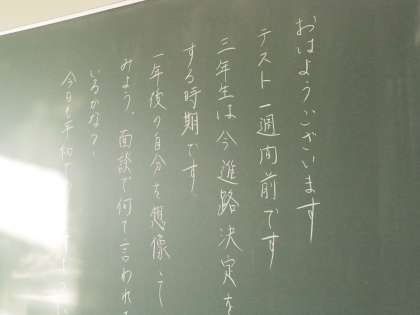 おはようございます
テスト一週間前です
三年生は今進路決定を
する時期です。
一年後の自分を想像して
みよう。面談で何て言われ
いるかな？
今日も